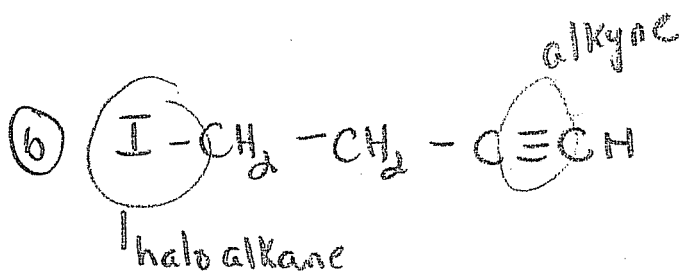 alkyne
b I-CH₂-CH₂-C≡CH
haloalkane